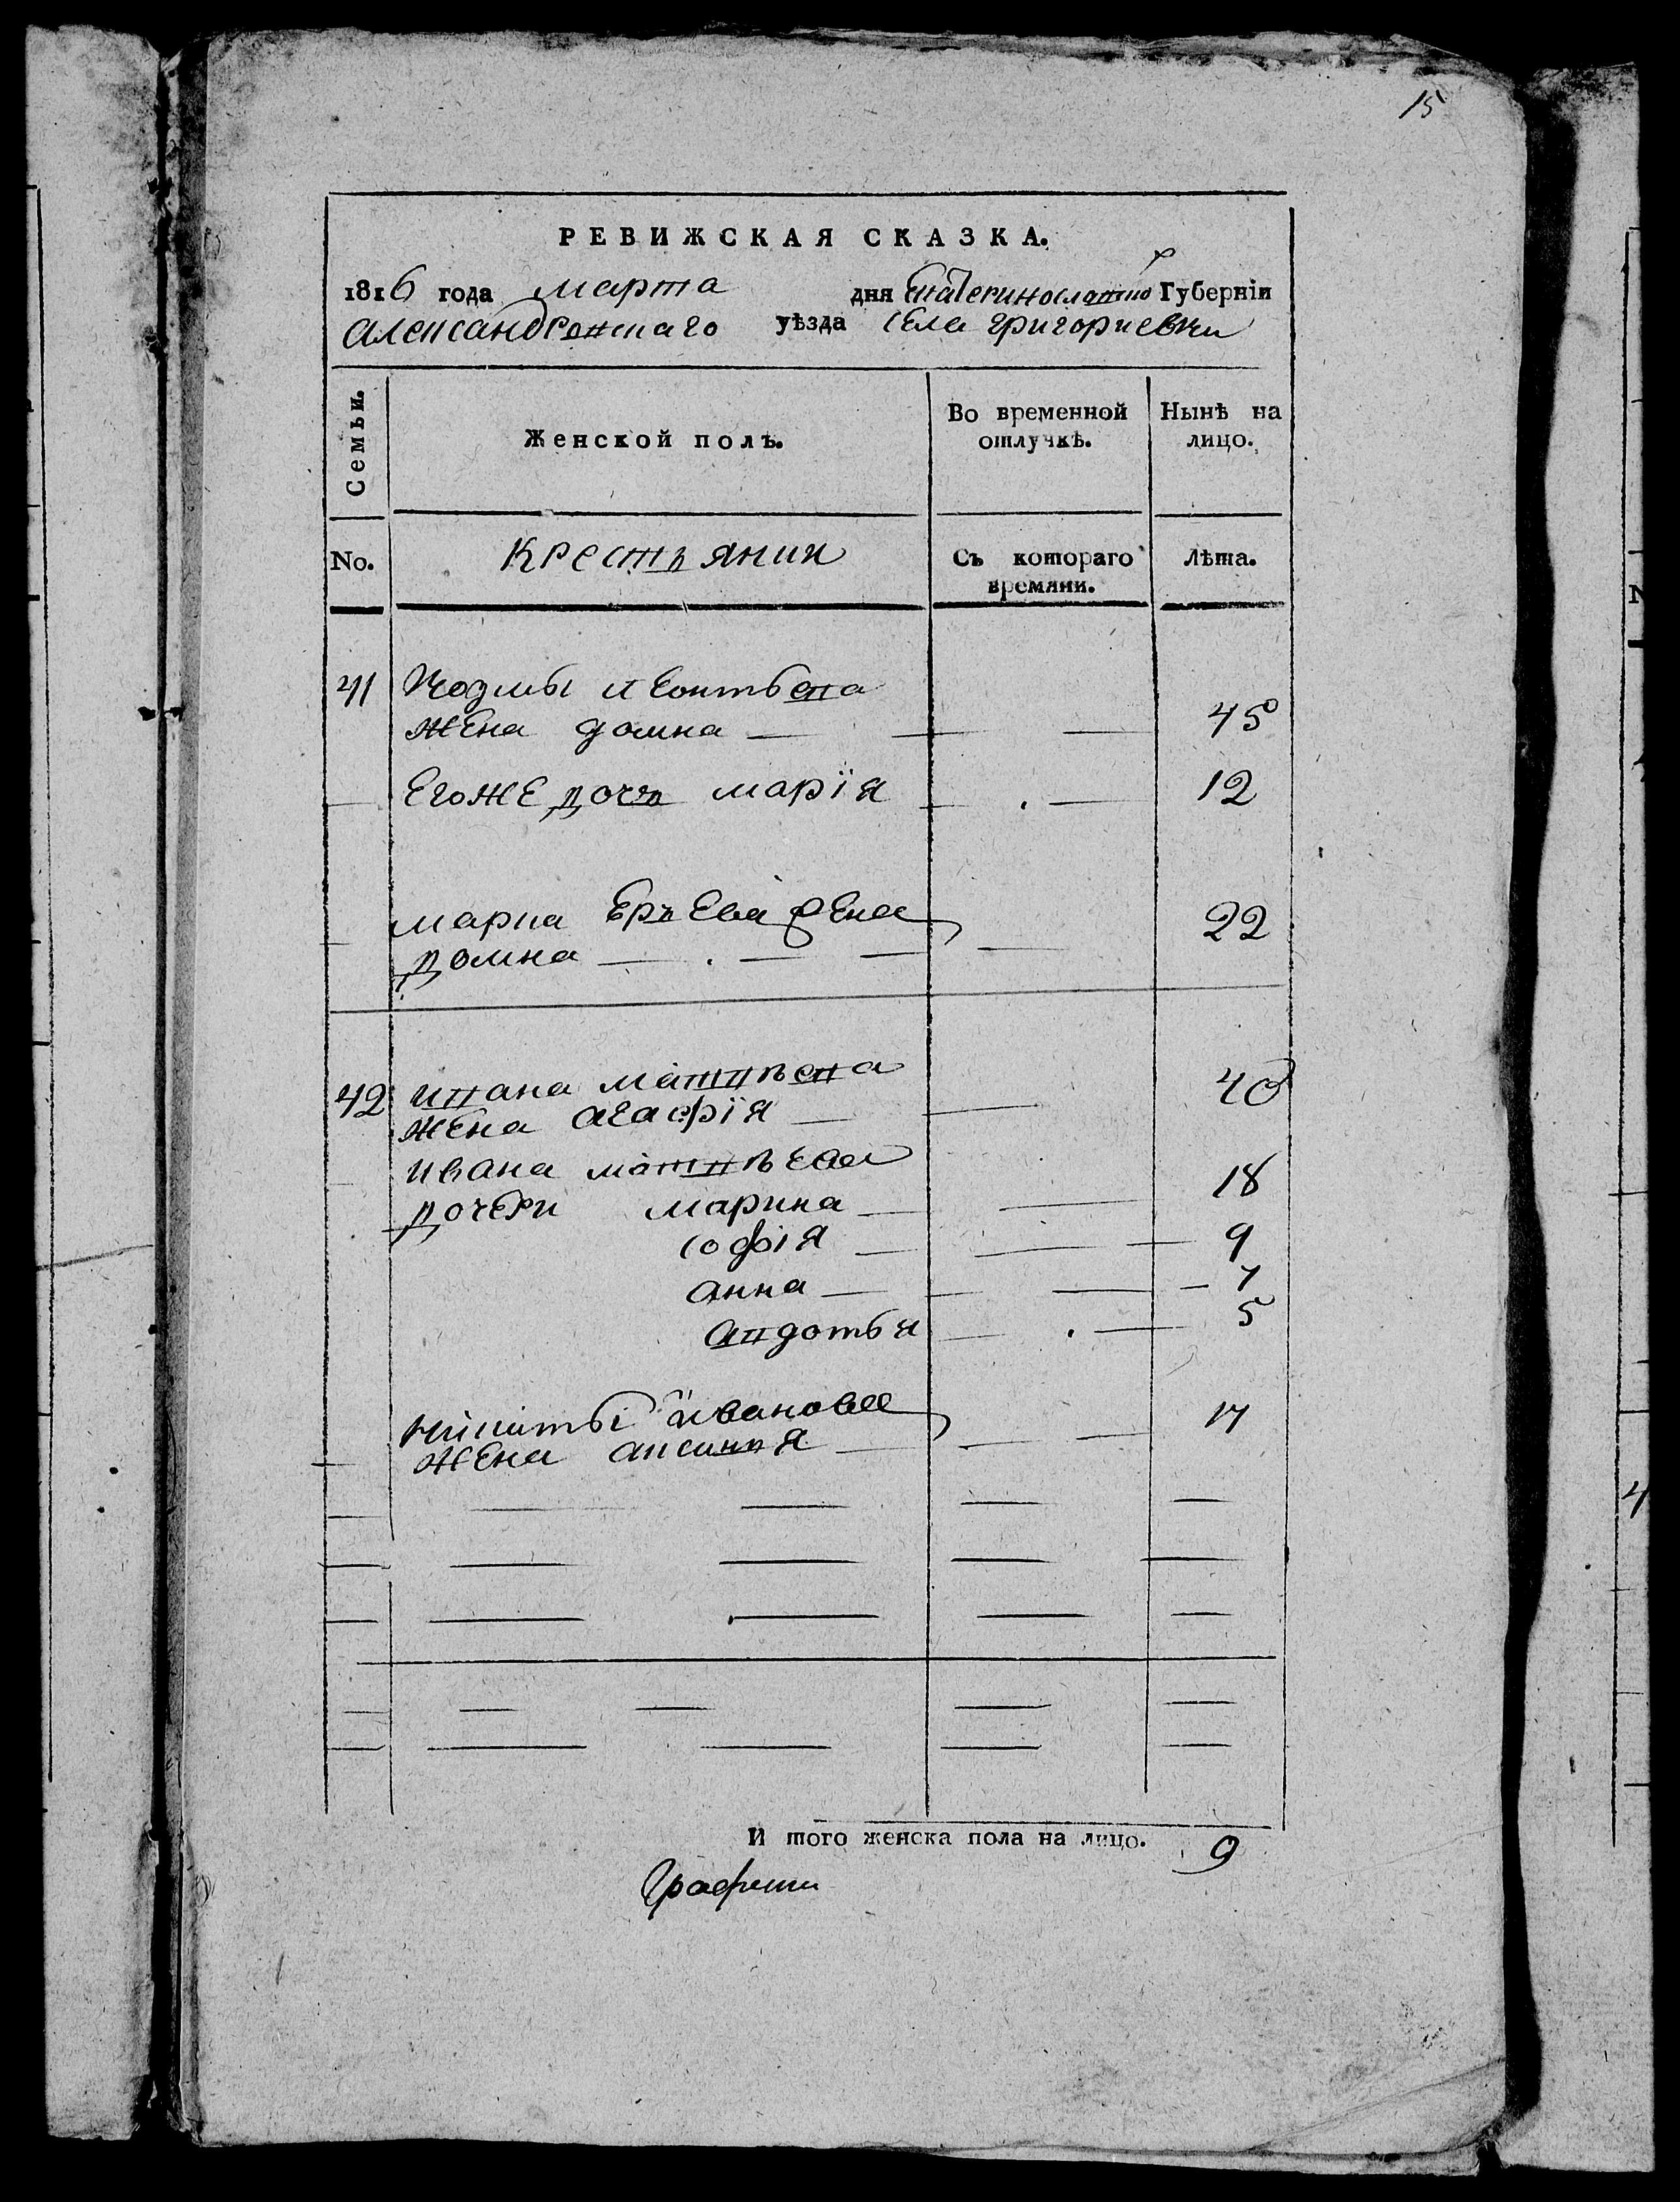 15
РЕВИЖСКАЯ СКАЗКА.
1816 года марта дня Екатеринославской Губернïи
Александровскаго уѣзда села григориевки
Семьи.
Женской полъ.
Во временной отлучкѣ.
Нынѣ на лицо.
No.
Крестьянии
Съ котораго времяни.
Лѣта.
41 Козмы леонтьева
жена домна — 45
его же дочь марïя — 12
марка жена 22
домна —
42 ивана матвѣева 40
жена агафïя —
ивана матвѣева
дочери марина — 18
софія — 9
анна — 7
авдотья — 5
никиты ивановa 17
жена аксинья —
И того женска пола на лицо. 9